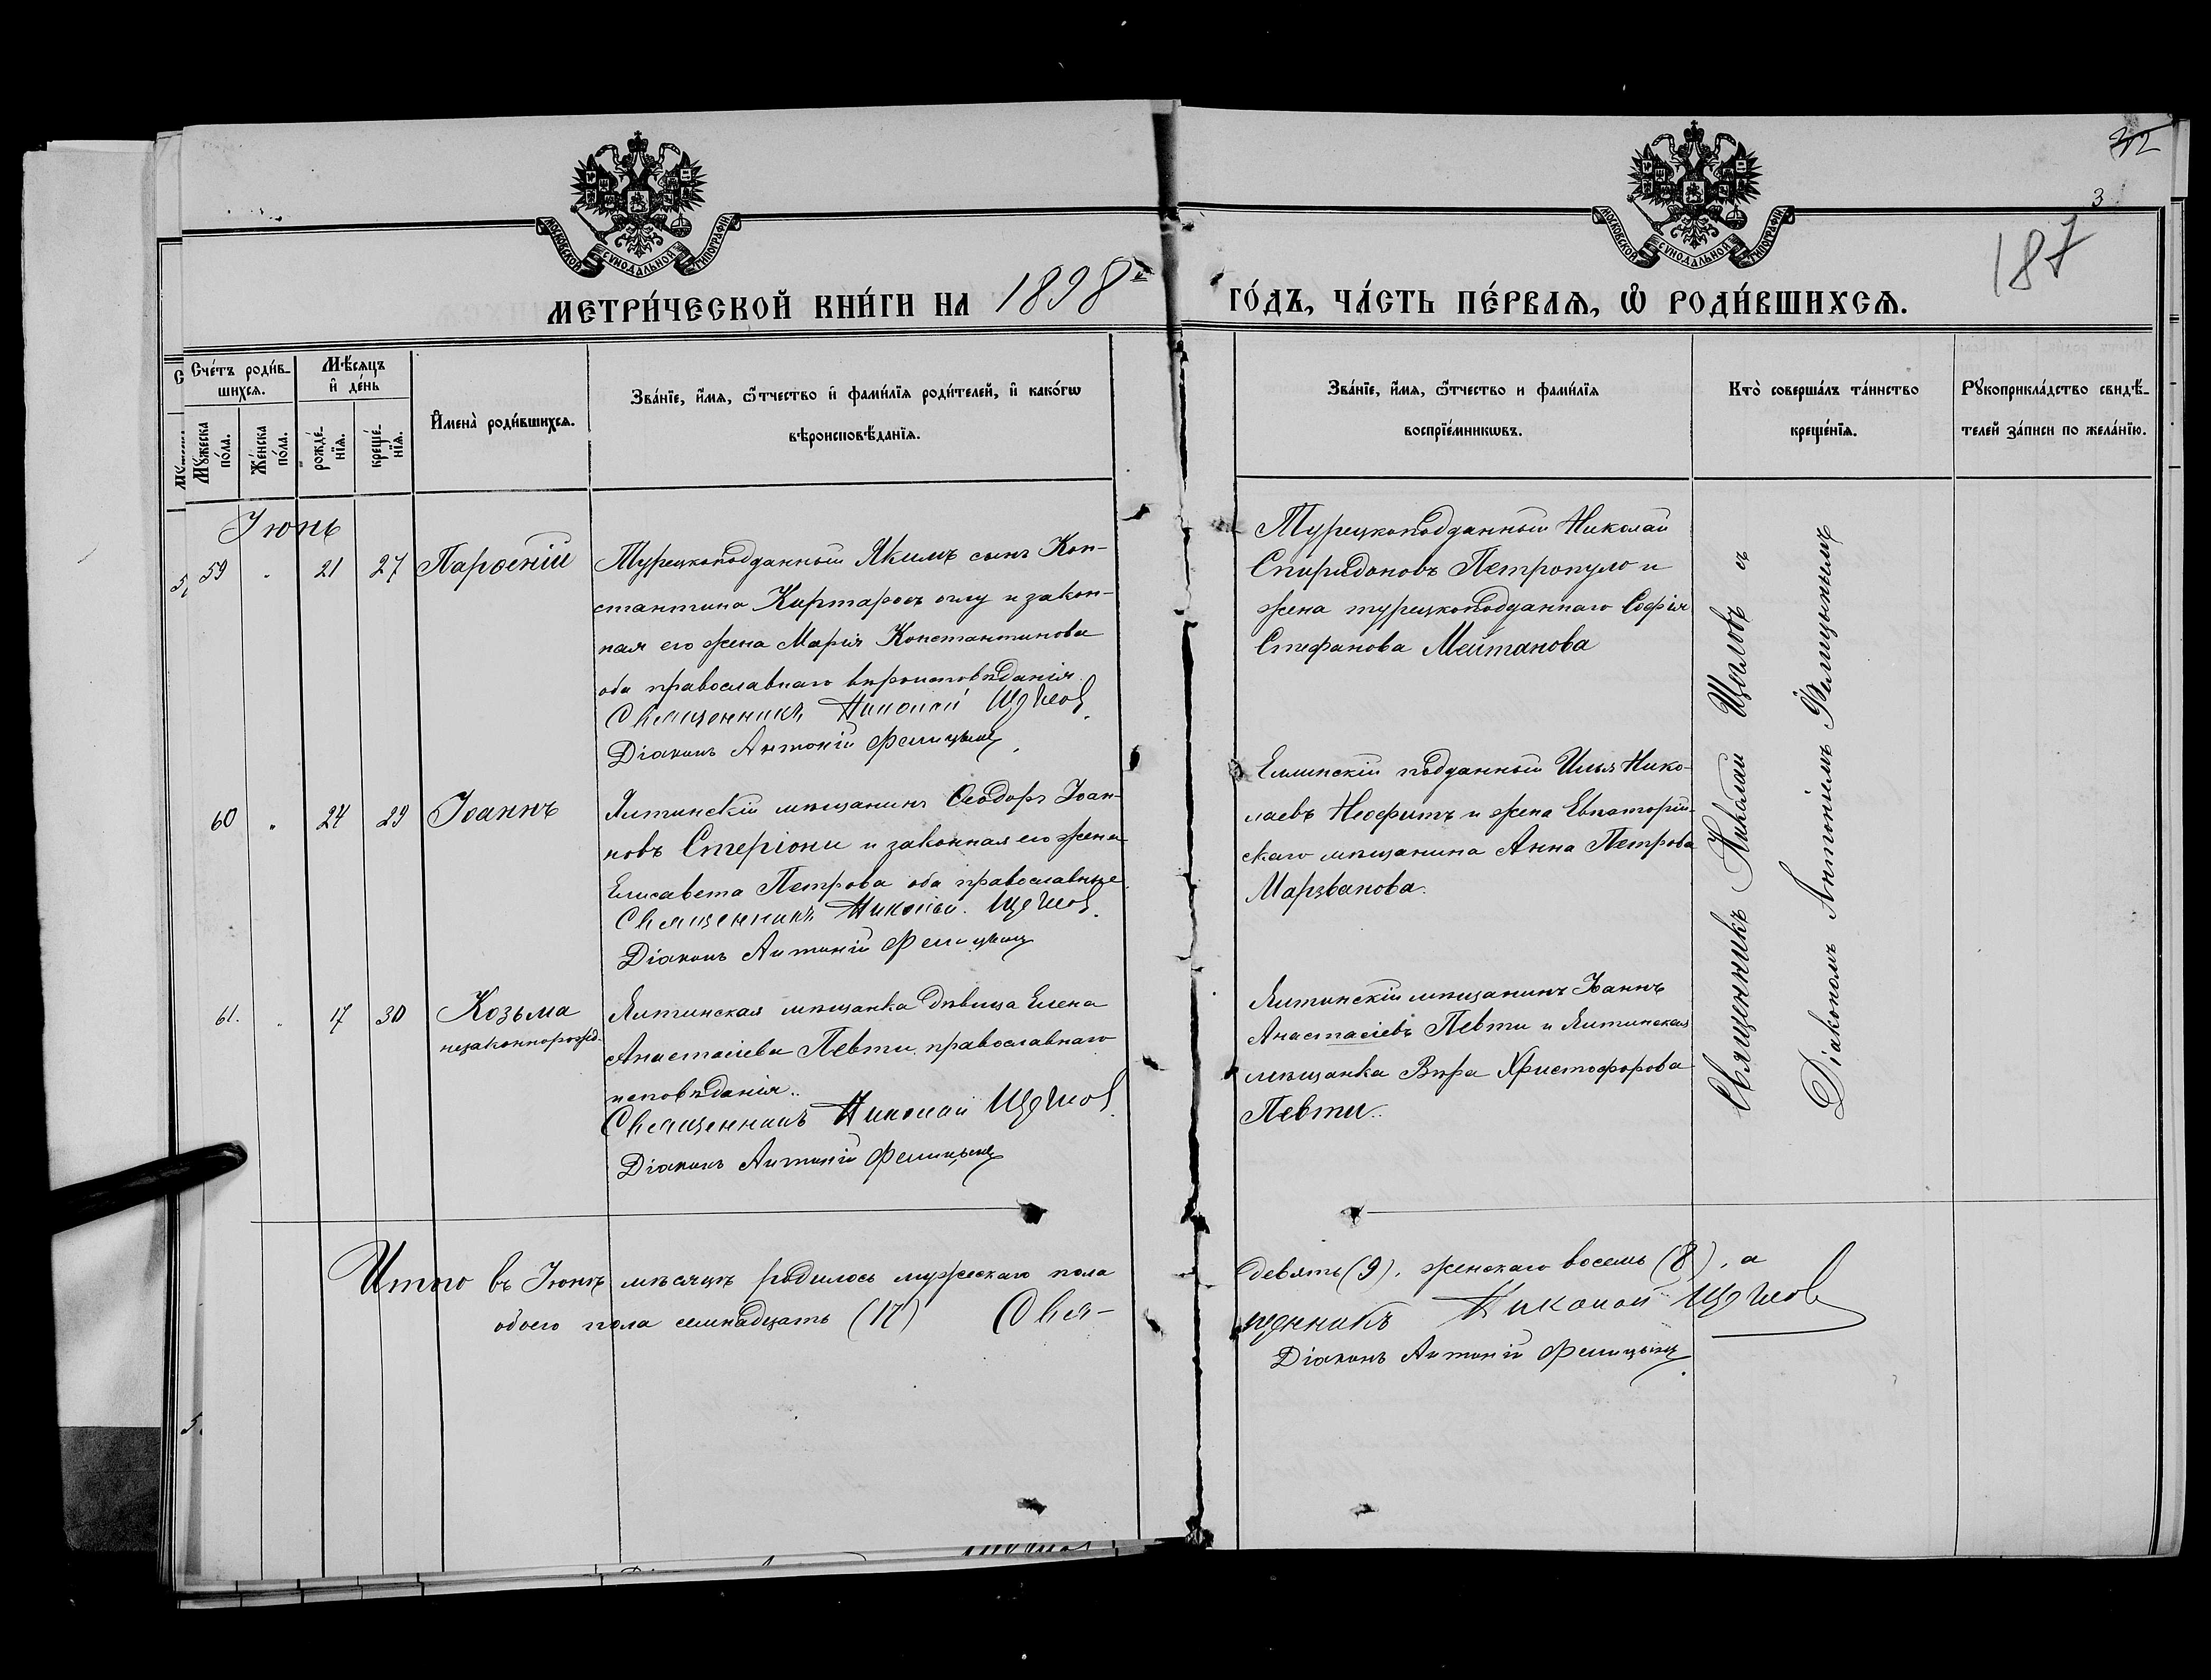 32
3
187
МОСКОВСКОЙ СУНОДАЛЬНОЙ ТИПОГРАФІИ
МОСКОВСКОЙ СУНОДАЛЬНОЙ ТИПОГРАФІИ
МЕТРИ́ЧЕСКОЙ КНИ́ГИ НА 1898 й
ГО́ДЪ, ЧА́СТЬ ПЕ́РВАѦ, Ѽ РОДИ́ВШИХСѦ.
Сче́тъ роди́в-
шихсѧ.
Мꙋ́жеска по́ла.
Же́нска по́ла.
Мѣ́сѧцъ
и҆ де́нь
рожде́-нїѧ.
креще́-нїѧ.
И҆мена̀ роди́вшихсѧ.
Зва́нїе, и҆́мѧ, ѻ҆́тчество и҆ фами́лїѧ роди́телей, и҆ како́гѡ
вѣроисповѣ́данїѧ.
Зва́нїе, и҆́мѧ, ѻ҆́тчество и фами́лїѧ
воспрїе́мникѡвъ.
Кто̀ соверша́лъ та́инство
креще́нїѧ.
Рꙋкоприкла́дство свидѣ́-
телей за́писи по жела́нїю.
Іюнь
59 " 21 27 Парѳеній
Турецкоподданный Якимъ сынъ Кон-
стантина Киртаросъ оглу и закон-
ная его жена Марія Константинова
оба православнаго вѣроисповѣданія.
Священникъ Николай Щегловъ.
Діаконъ Антоній Фелицынъ.
Турецкоподданный Николай
Спиридоновъ Петропуло и
жена турецкоподданнаго Софія
Стефанова Мейтанова
60 " 24 29 Іоаннъ
Ялтинскій мѣщанинъ Ѳеодоръ Іоан-
новъ Стеріони и законная его жена
Елисавета Петрова оба православные.
Священникъ Николай Щегловъ.
Діаконъ Антоній Фелицынъ
Еллинскій подданный Илья Нико-
лаевъ Неофитъ и жена Евпаторій-
скаго мѣщанина Анна Петрова
Марзванова.
61. " 17 30 Козьма
незаконнорожд.
Ялтинская мѣщанка дѣвица Елена
Анастасіева Певти, православнаго
исповѣданія..
Священникъ Николай Щегловъ.
Діаконъ Антоній Фелицынъ
Ялтинскій мѣщанинъ Іоаннъ
Анастасіевъ Певти и Ялтинская
мѣщанка Вѣра Христофорова
Певти..
Священникъ Николай Щегловъ съ
Діакономъ Антоніемъ Фелицынымъ
Итого въ Іюнѣ мѣсяцѣ родилось мужескаго пола
девять (9), женскаго восемь (8), а
обоего пола семнадцать (17) Свя-
щенникъ Николай Щегловъ
Діаконъ Антоній Фелицынъ.